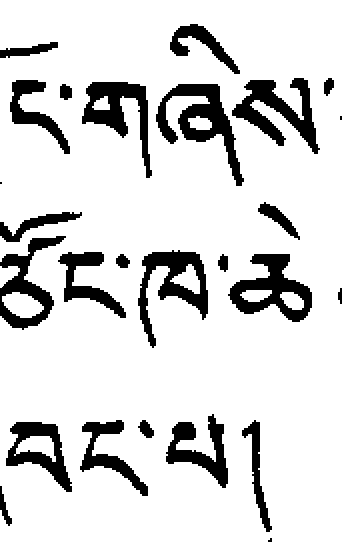 གཉིས་
ཚོང་ཁ་ཆེ
བང་པ།